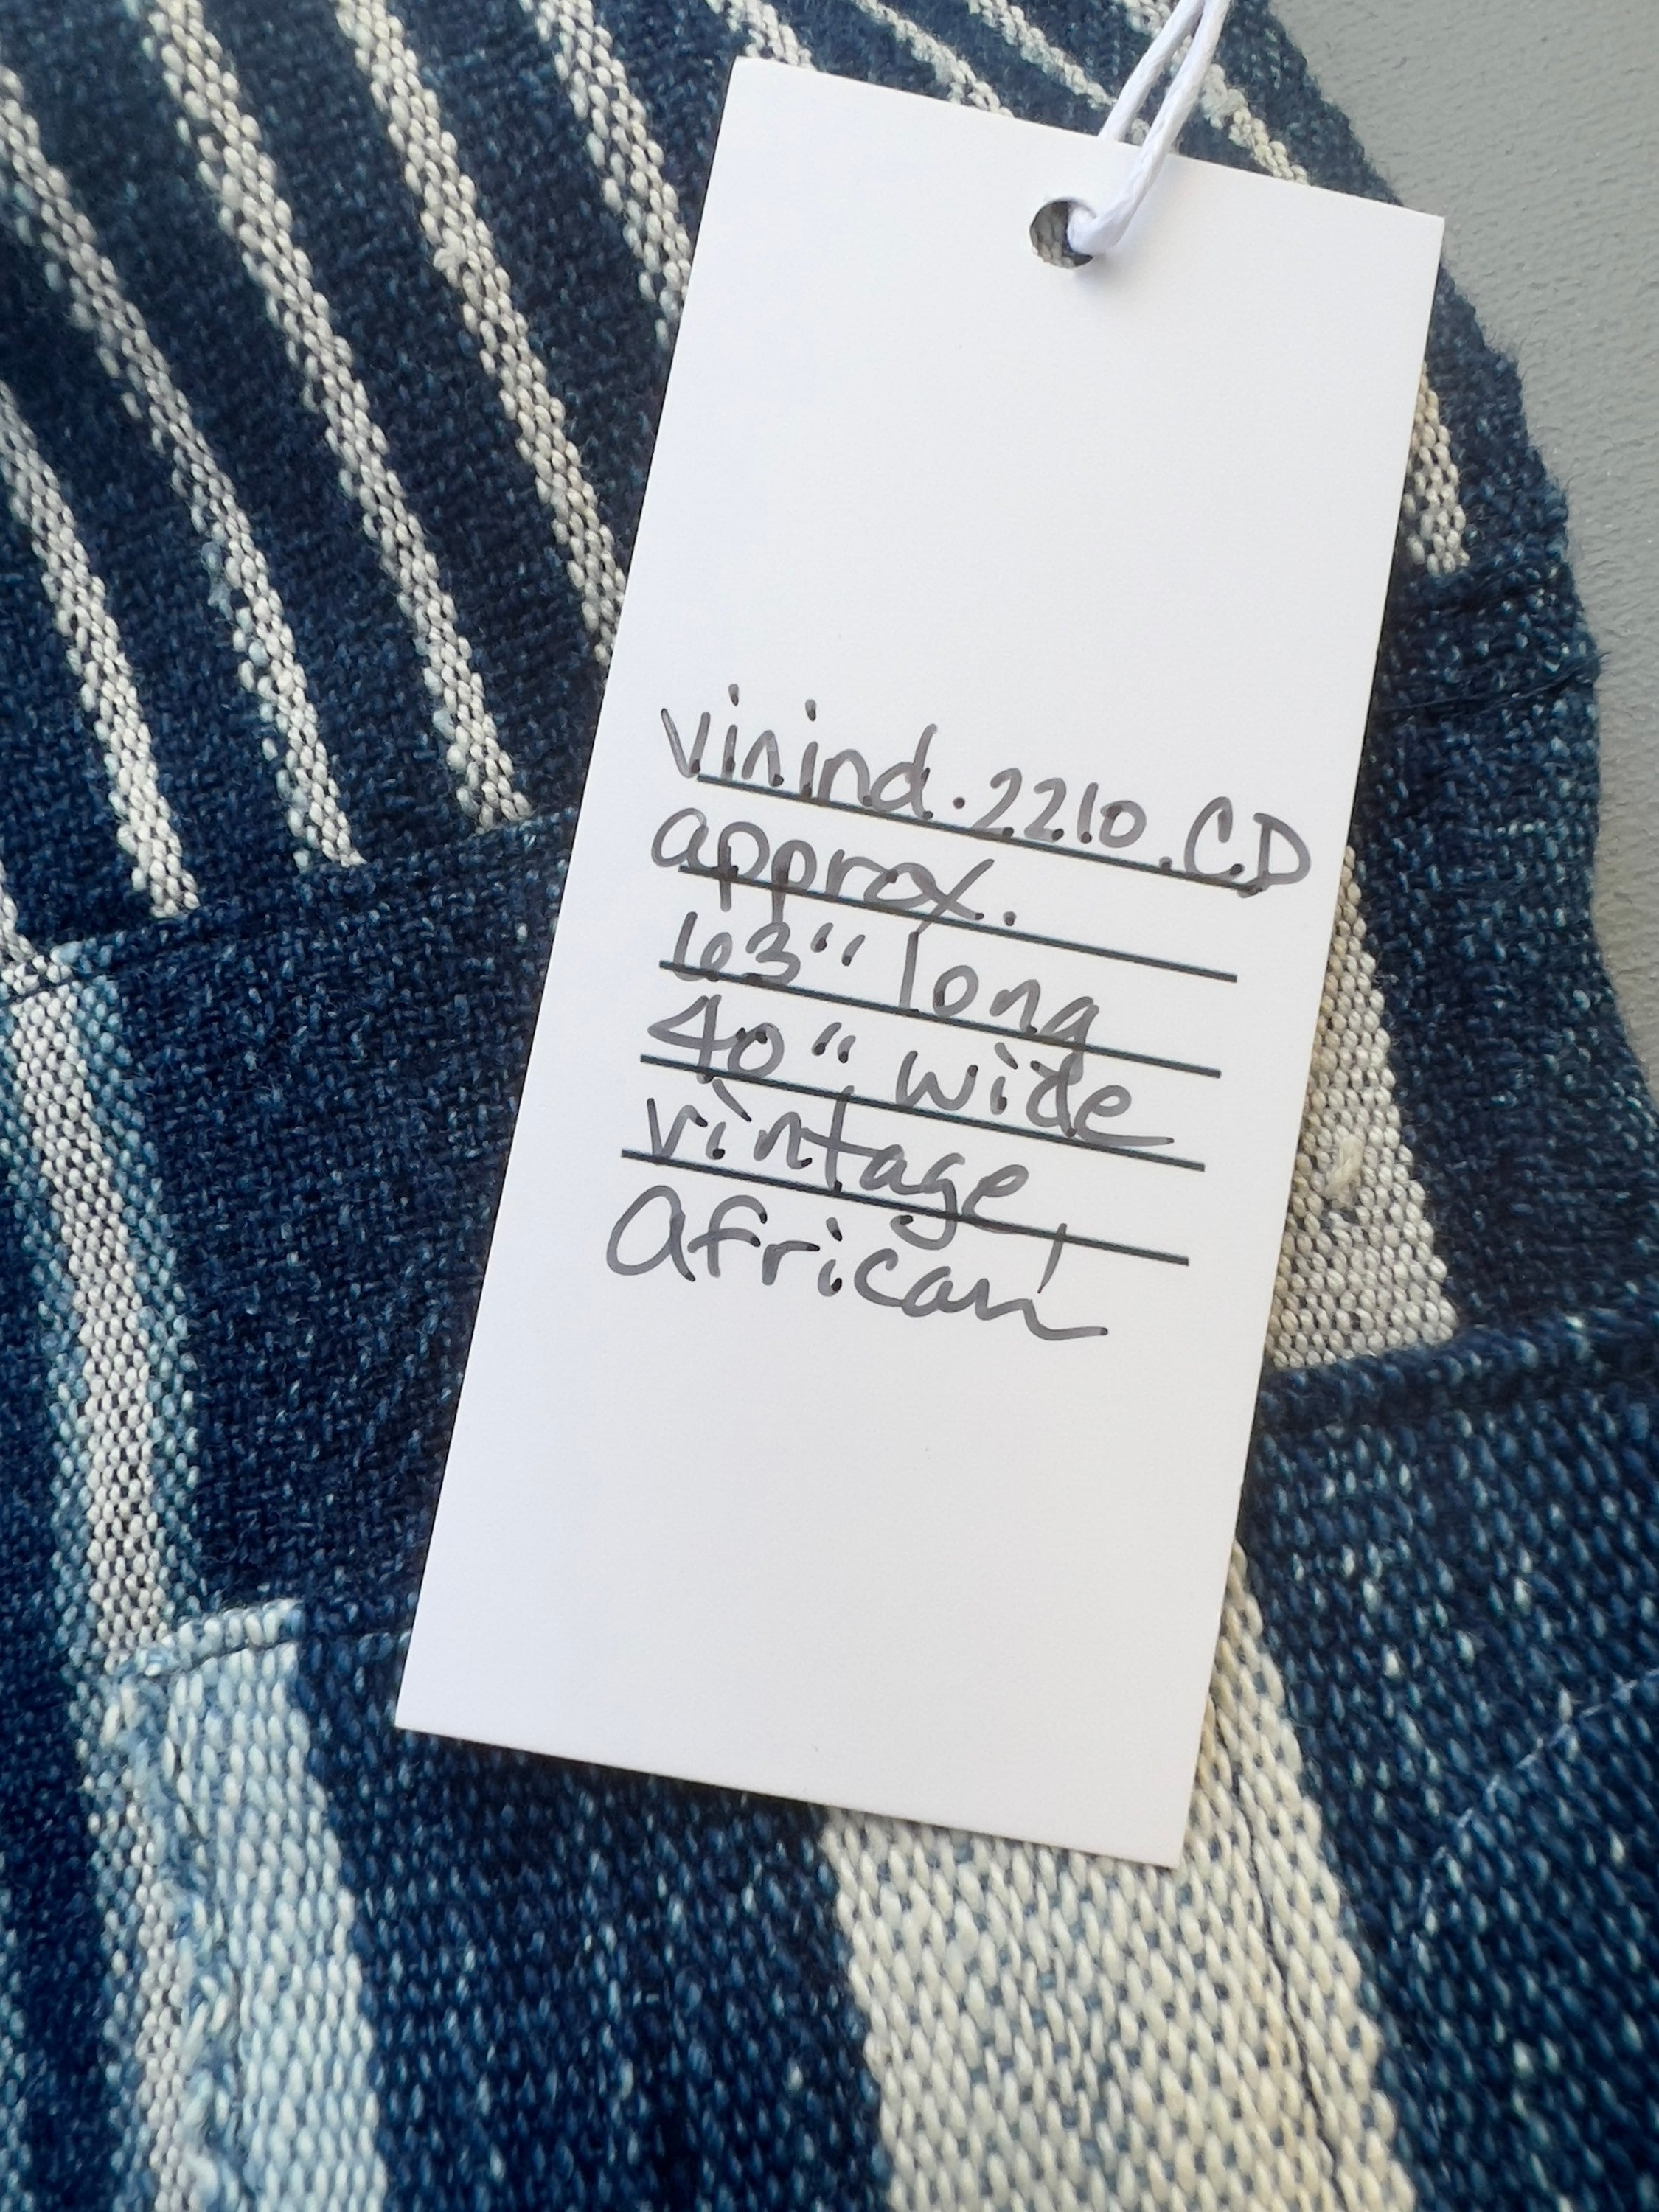 vinind.2210.CD
approx.
63" long
40" wide
vintage,
African